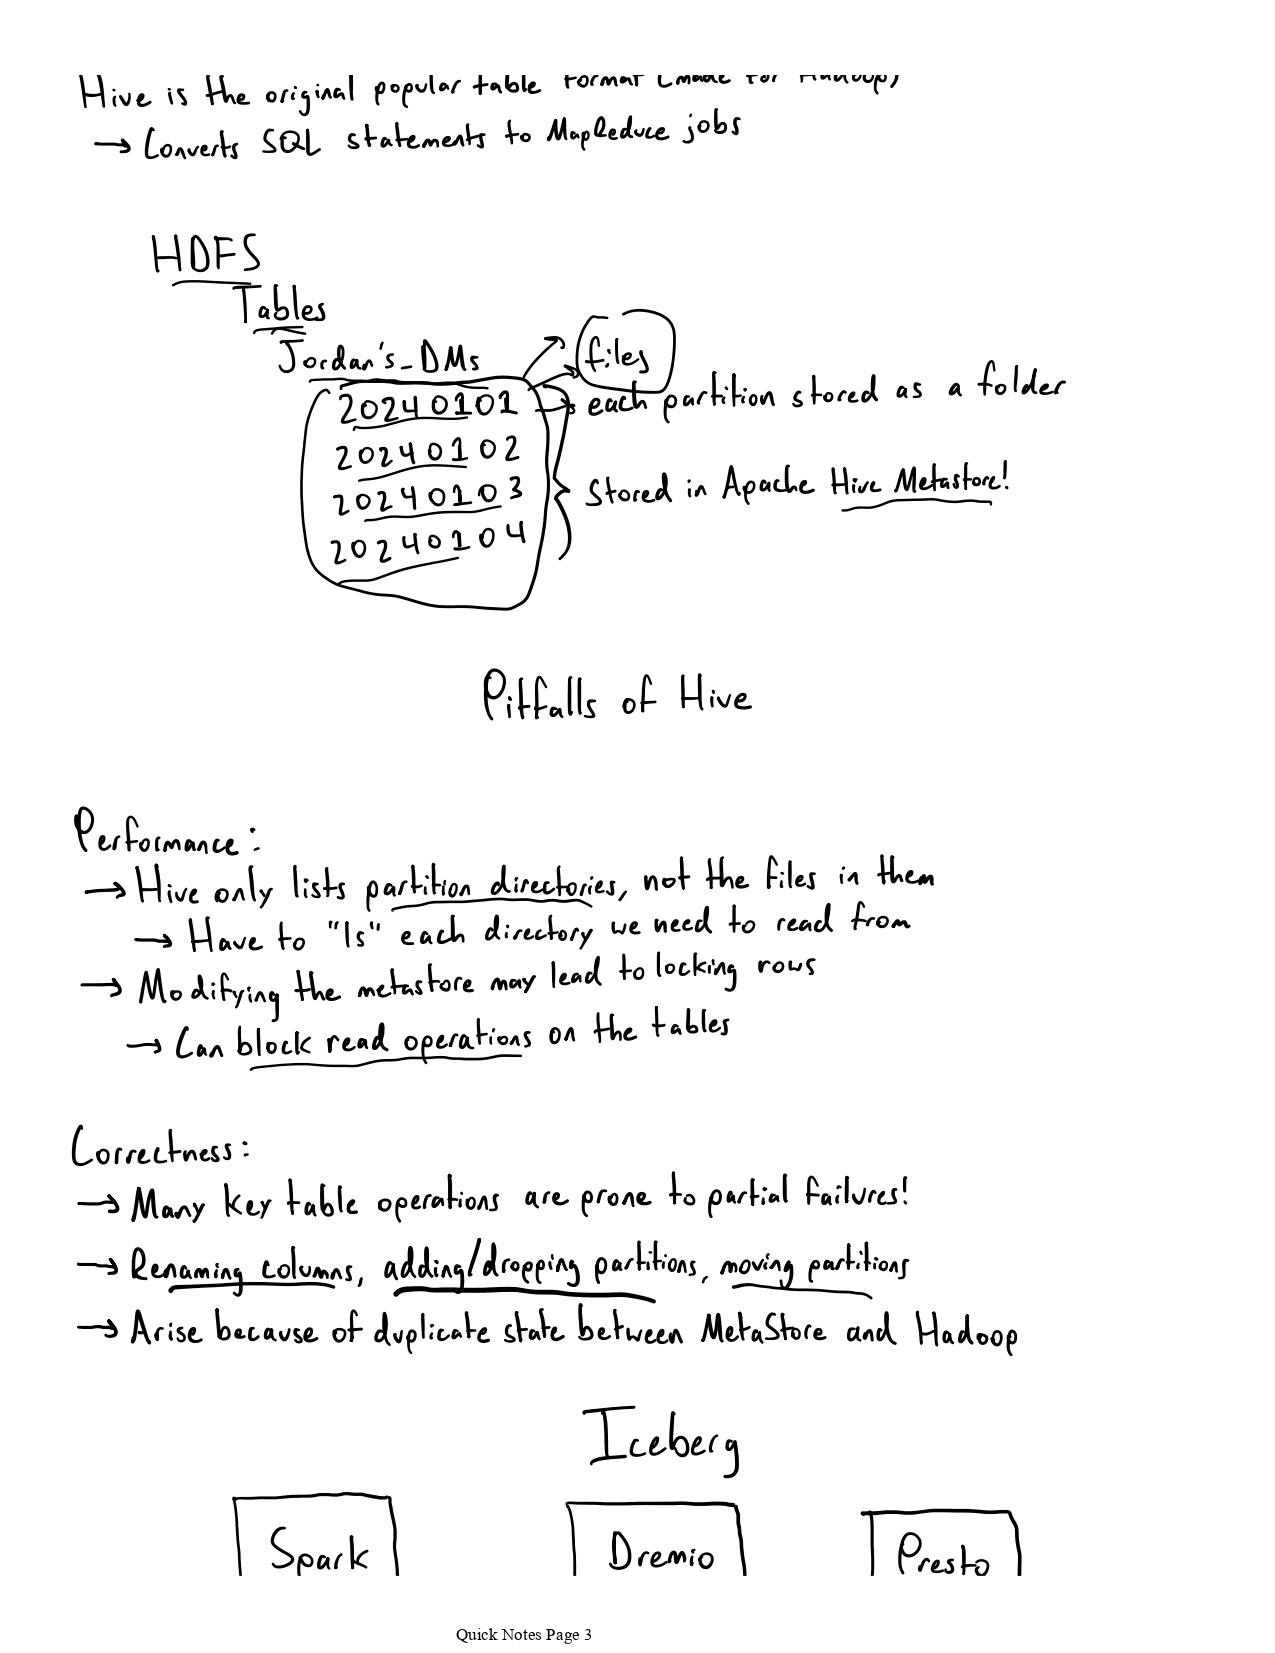 Hive is the original popular table format (made for Hadoop)
→ Converts SQL statements to MapReduce jobs
HDFS
Tables
Jordan's_DMs
files
20240101 → each partition stored as a folder
20240102
20240103
Stored in Apache Hive Metastore!
20240104
Pitfalls of Hive
Performance:
→ Hive only lists partition directories, not the files in them
→ Have to "ls" each directory we need to read from
→ Modifying the metastore may lead to locking rows
→ Can block read operations on the tables
Correctness:
→ Many key table operations are prone to partial failures!
→ Renaming columns, adding/dropping partitions, moving partitions
→ Arise because of duplicate state between MetaStore and Hadoop
Iceberg
Spark
Dremio
Presto
Quick Notes Page 3